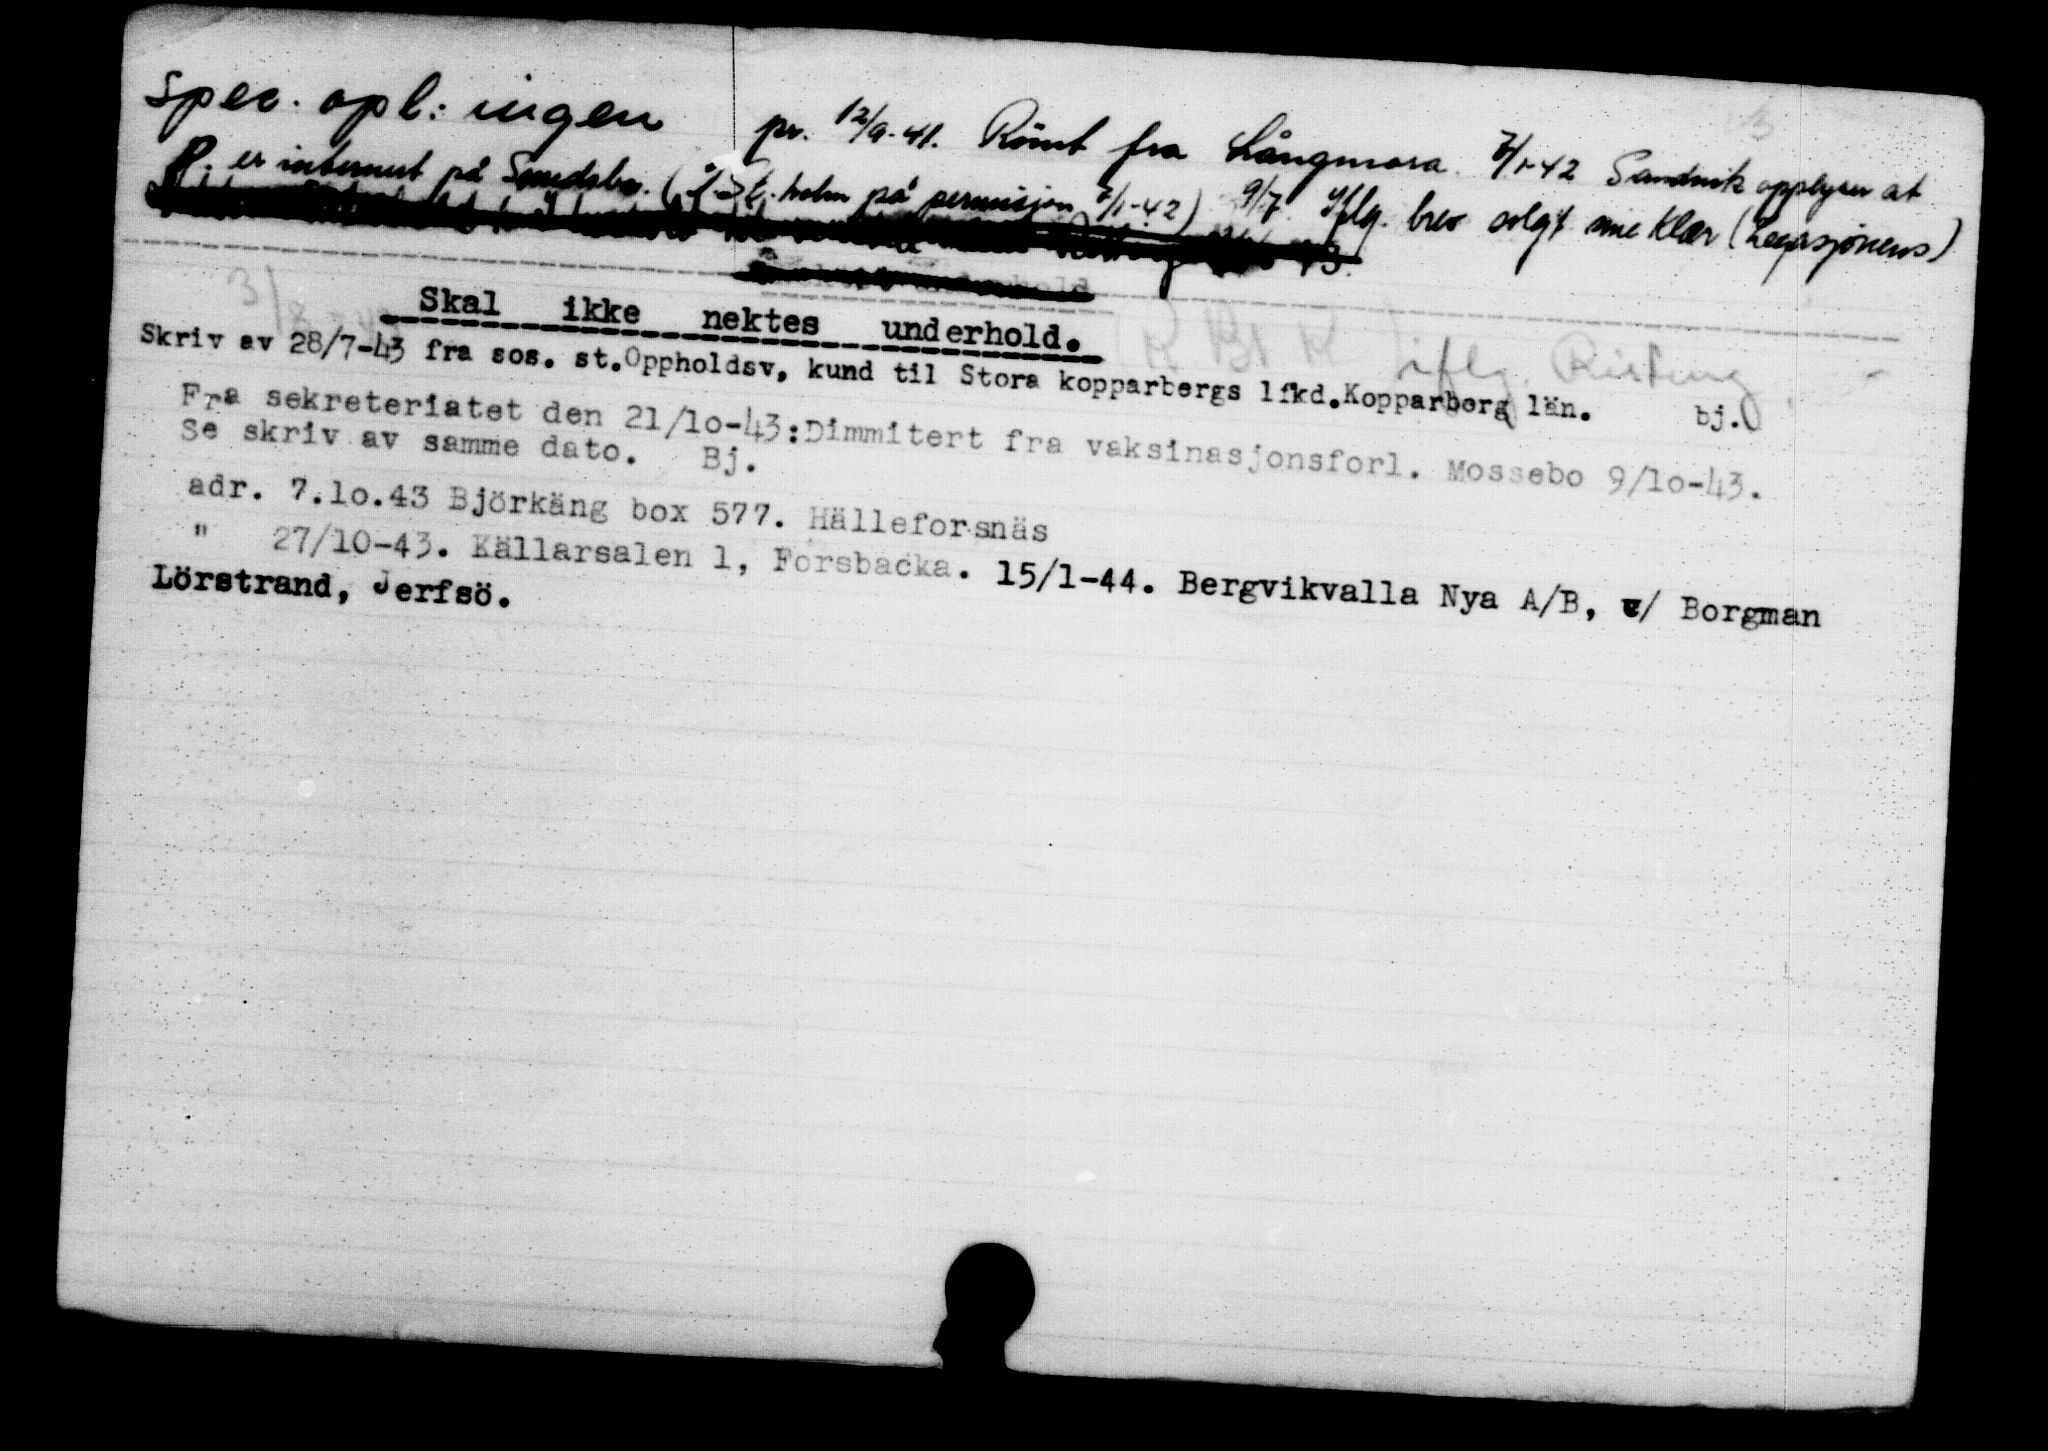 Spec. opl: ingen
pr. 12/9-41. Römt fra Långmora. 7/1-42 Sandvik opplyser at
P. er internert på Smedsbo. (I St.holm på permisjon 7/1-42) 9/7 Iflg. brev solgt sine klær (Legasjonens)
Skal ikke nektes underhold.
iflg. Risting
Skriv av 28/7-43 fra sos. st.Oppholdsv, kund til Stora kopparbergs lfkd.Kopparberg län. bj.
Fra sekreteriatet den 21/10-43:Dimmitert fra vaksinasjonsforl. Mossebo 9/10-43.
Se skriv av samme dato. Bj.
adr. 7.10.43 Björkäng box 577. Hälleforsnäs
" 27/10-43. Källarsalen 1, Forsbacka. 15/1-44. Bergvikvalla Nya A/B, v/ Borgman
Lörstrand, Jerfsö.